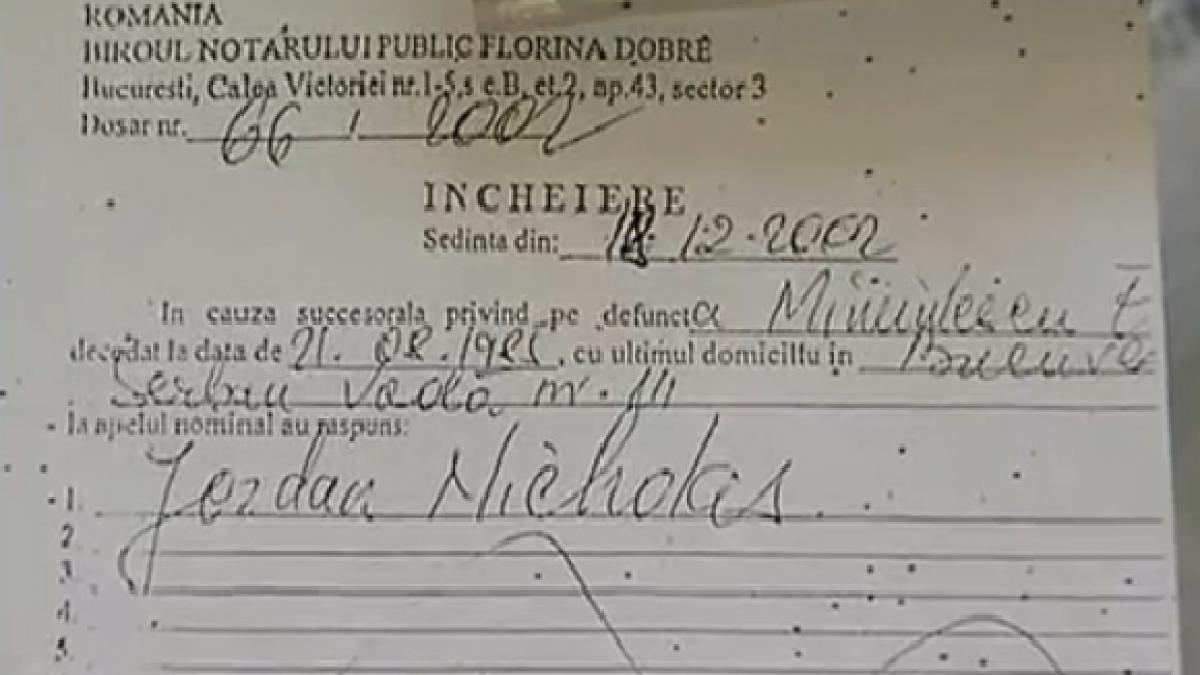 ROMANIA
BIROUL NOTARULUI PUBLIC FLORINA DOBRE
Bucuresti, Calea Victoriei nr.1-5,s c.B, et.2, ap.43, sector 3
Dosar nr. 66 / 2002
INCHEIERE
Sedinta din: 12-2002
In cauza succesorala privind pe defuncta
decedat la data de 21. 08. , cu ultimul domiciliu in
Serban Voda nr.
la apelul nominal au raspuns:
1. Jordan Nicholas
2.
3.
4.
5.